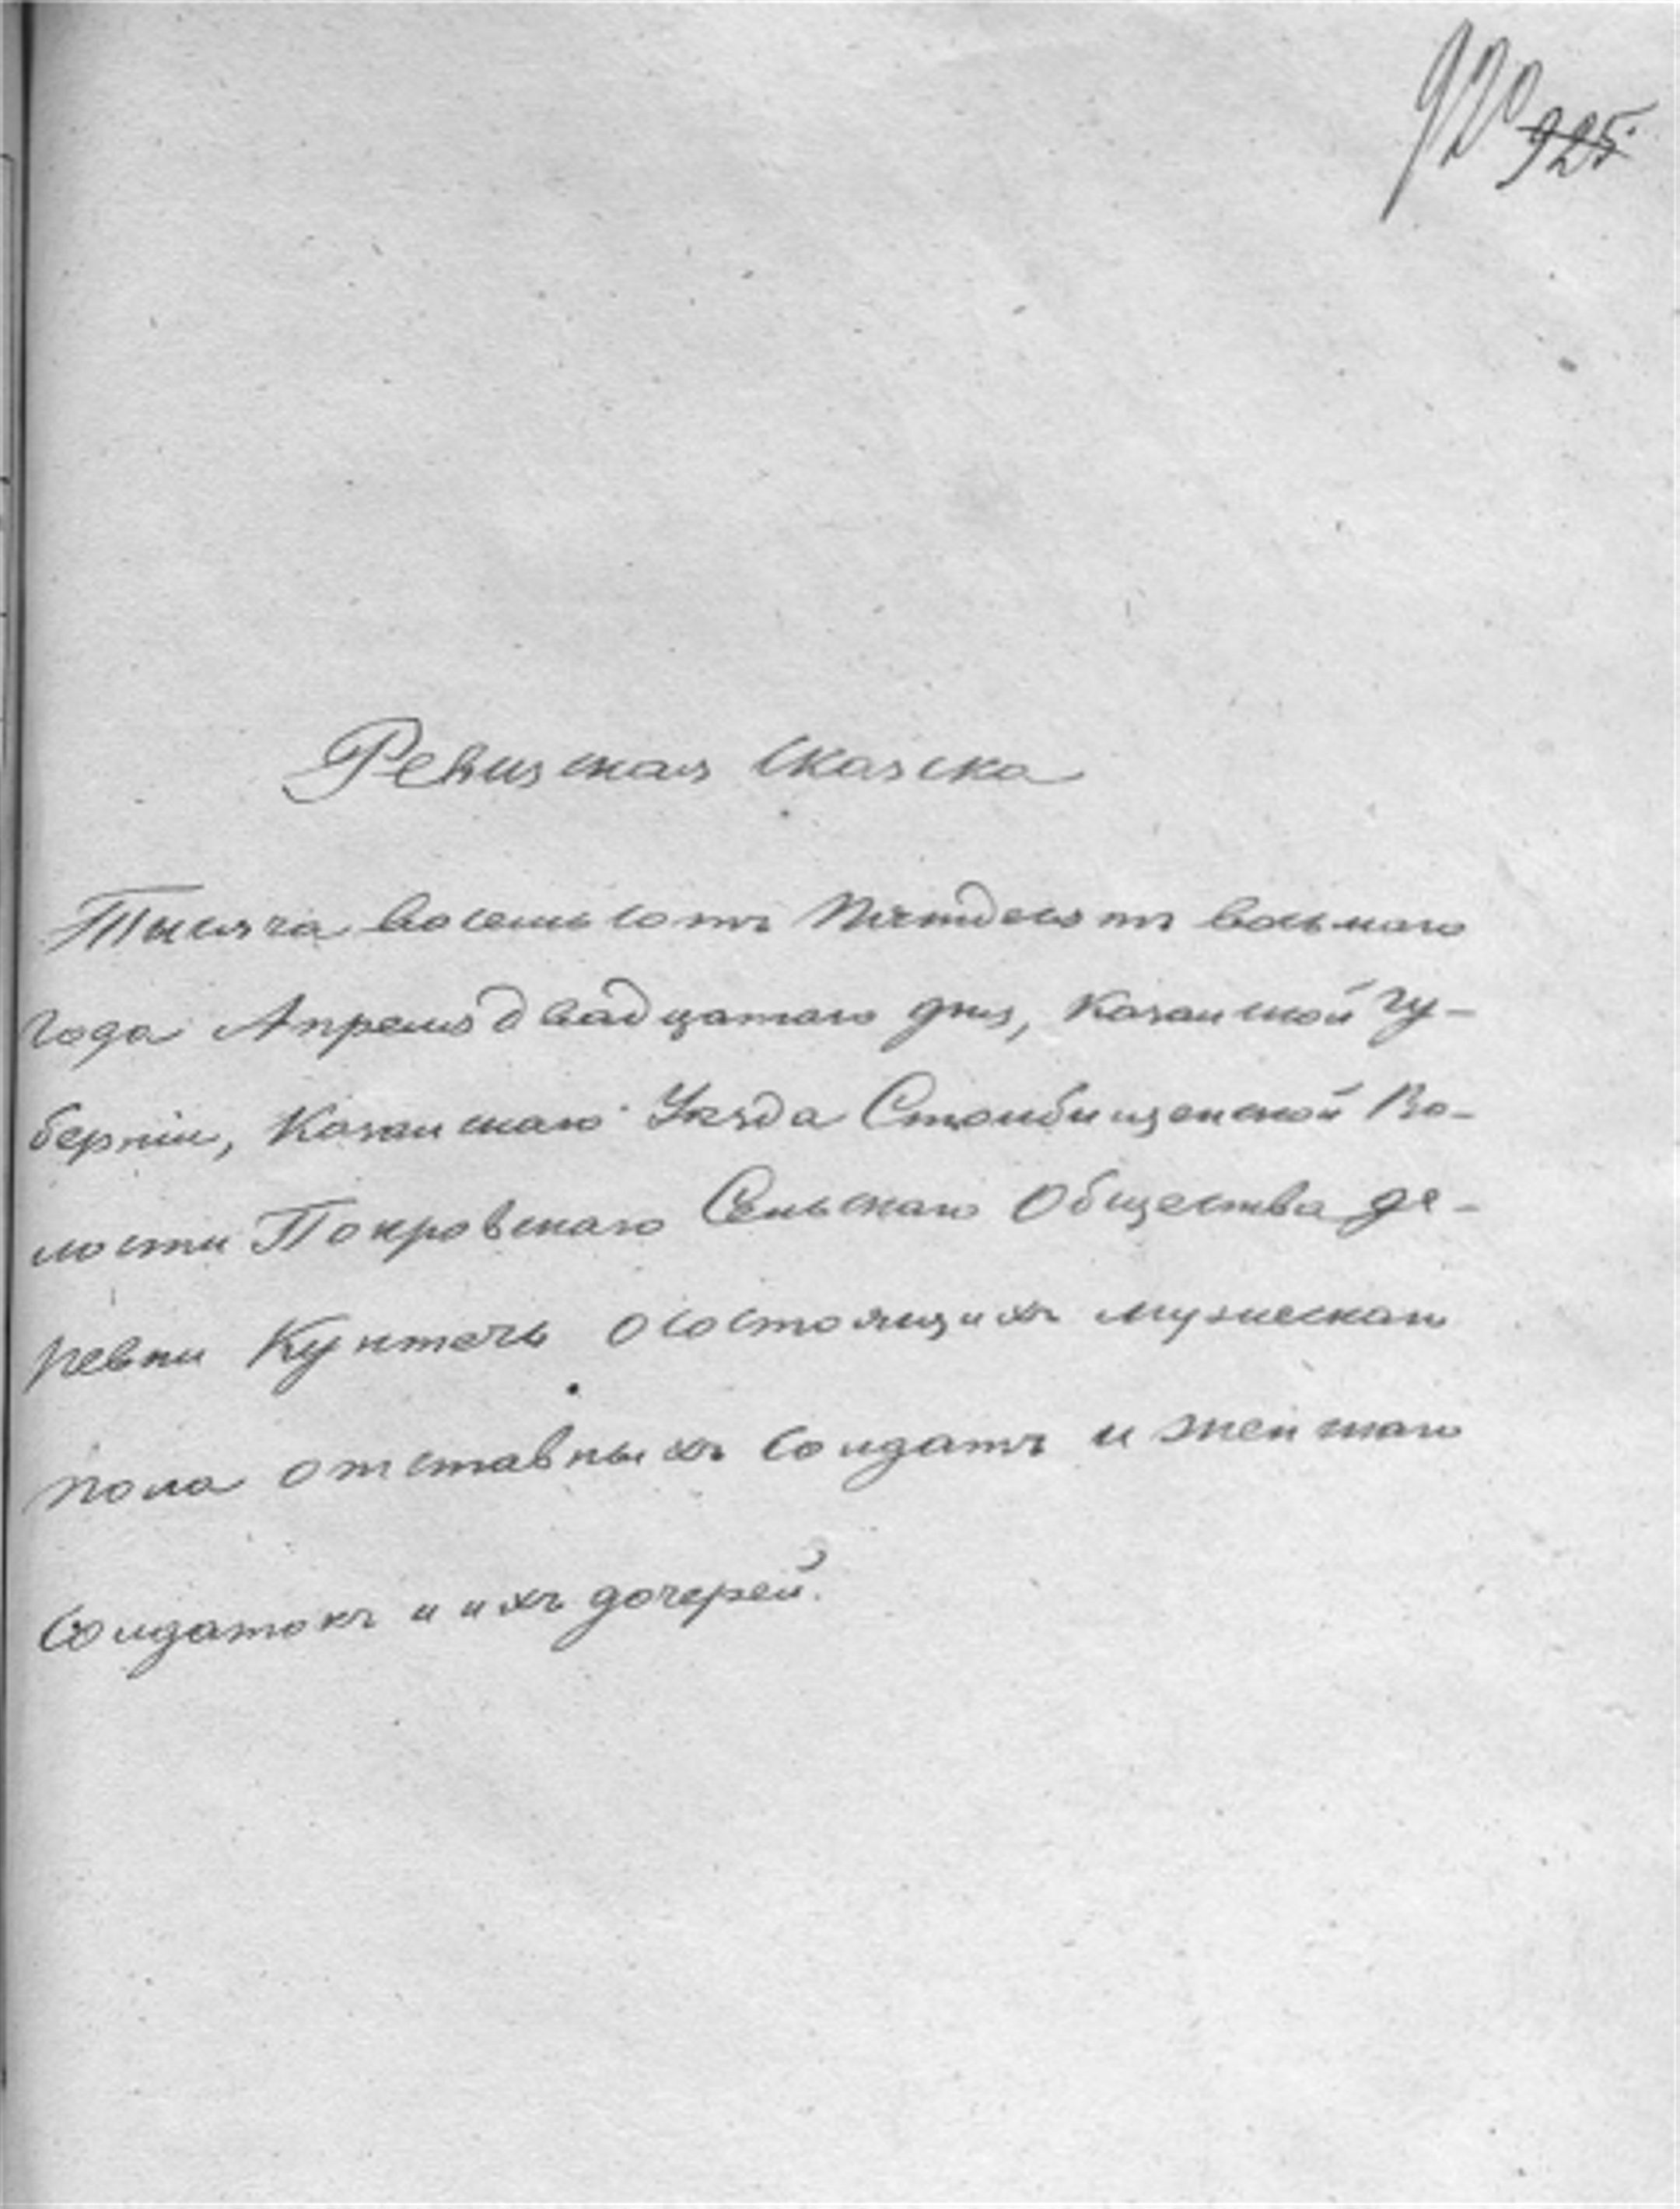 920 925
Ревизская сказка
Тысяча восемьсотъ Пятидесятъ восьмаго
года Апреля двадцатаго дня, Казанской гу-
берніи, Казанскаго Уезда Столбищенской Во-
лости Покровскаго Сельскаго Общества де-
ревни Кунтечь о состоящихъ мужескаго
пола отставныхъ солдатъ и женскаго
солдатокъ и ихъ дочерей.